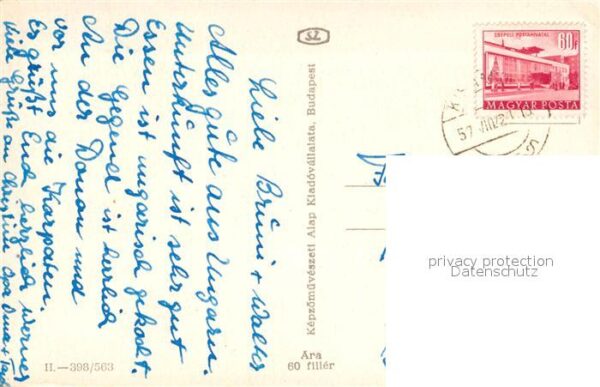 Liebe Brüni + Walter
Alles gute aus Ungarn.
Unterkunft ist sehr gut
Essen ist ungarisch gekocht.
Die Gegend ist herrlich
An der Donau und
vor uns die Karpaten.
Es grüßt Euch herzlich Werner
viele Grüße an Christine Opa Oma +
II.—398/563
SZ
Képzőművészeti Alap Kiadóvállalata, Budapest
Ara
60 fillér
CSEPELI POSTAHIVATAL
60f
MAGYAR POSTA
57 VIII 21
privacy protection
Datenschutz